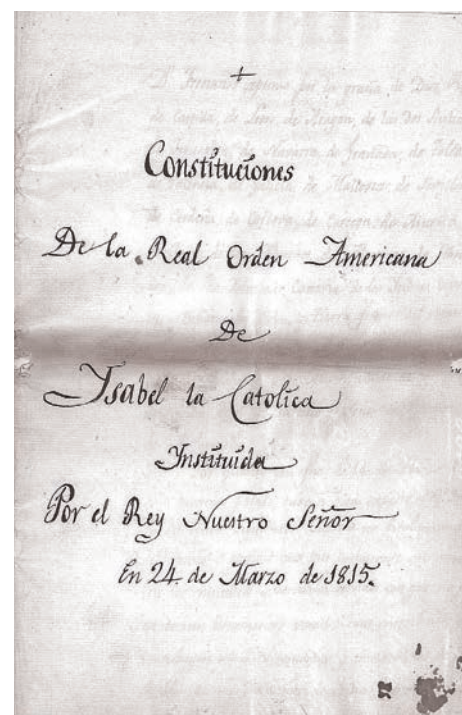 +
Constituciones
De la Real Orden Americana
De
Ysabel la Catolica
Instituida
Por el Rey Nuestro Señor
En 24 de Marzo de 1815.